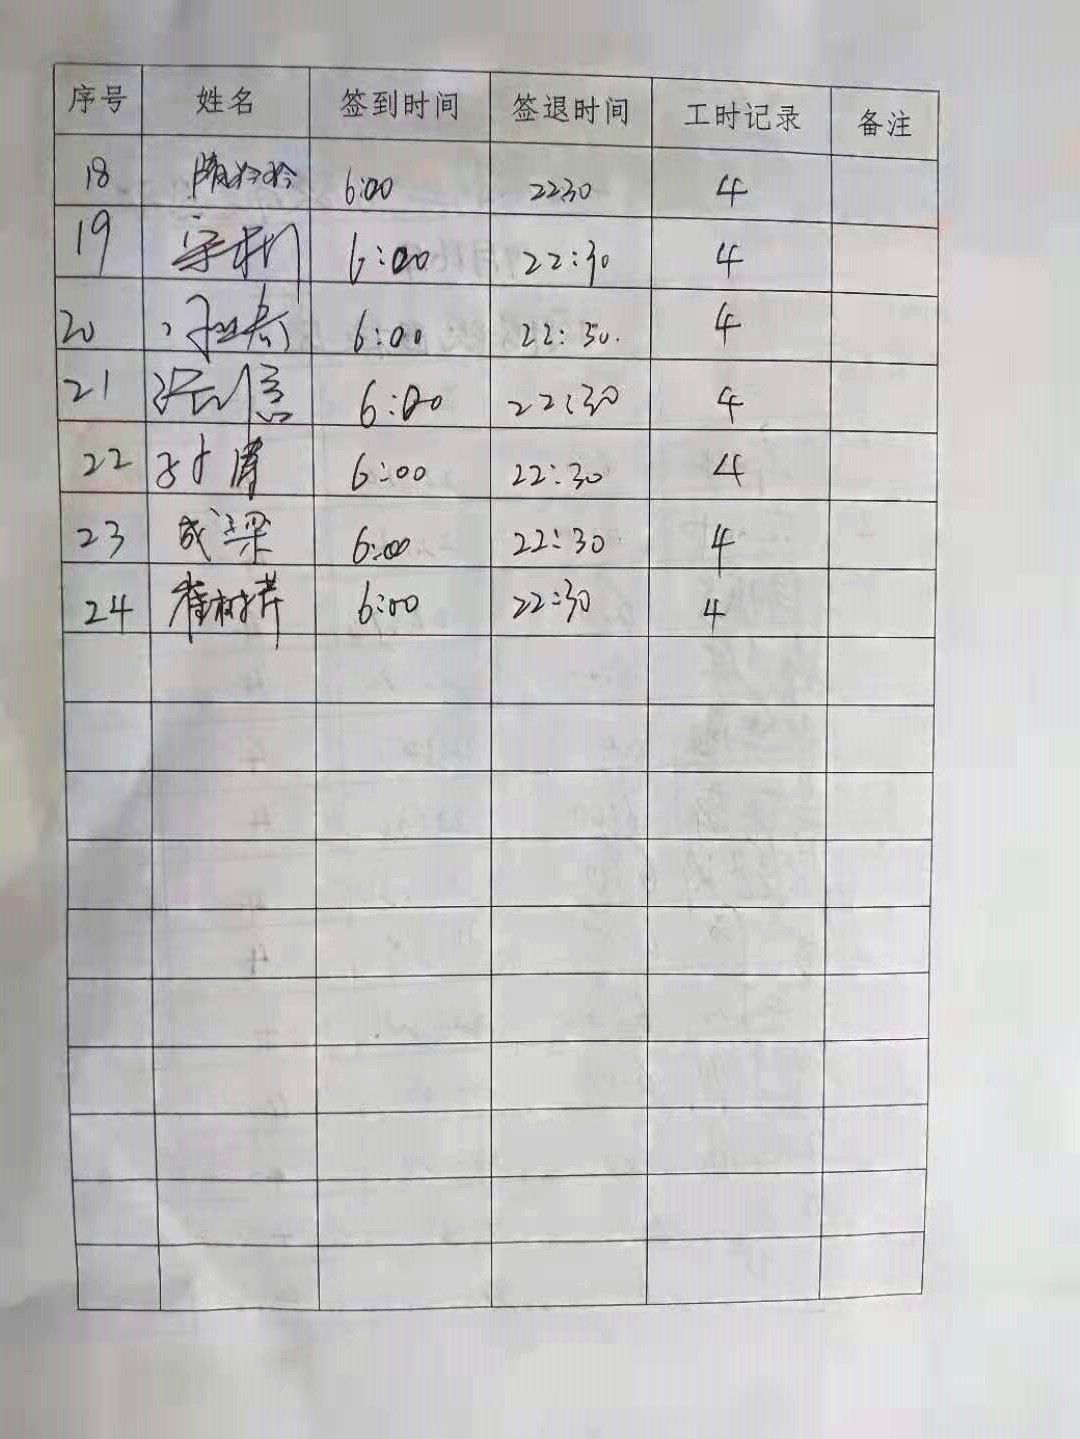 序号 姓名 签到时间 签退时间 工时记录 备注
18 隋玲玲 6:00 2230 4
19 6:00 22:30 4
20 6:00 22:30. 4
21 6:00 22:30 4
22 6:00 22:30 4
23 成梁 6:00 22:30 4
24 崔树芹 6:00 22:30 4